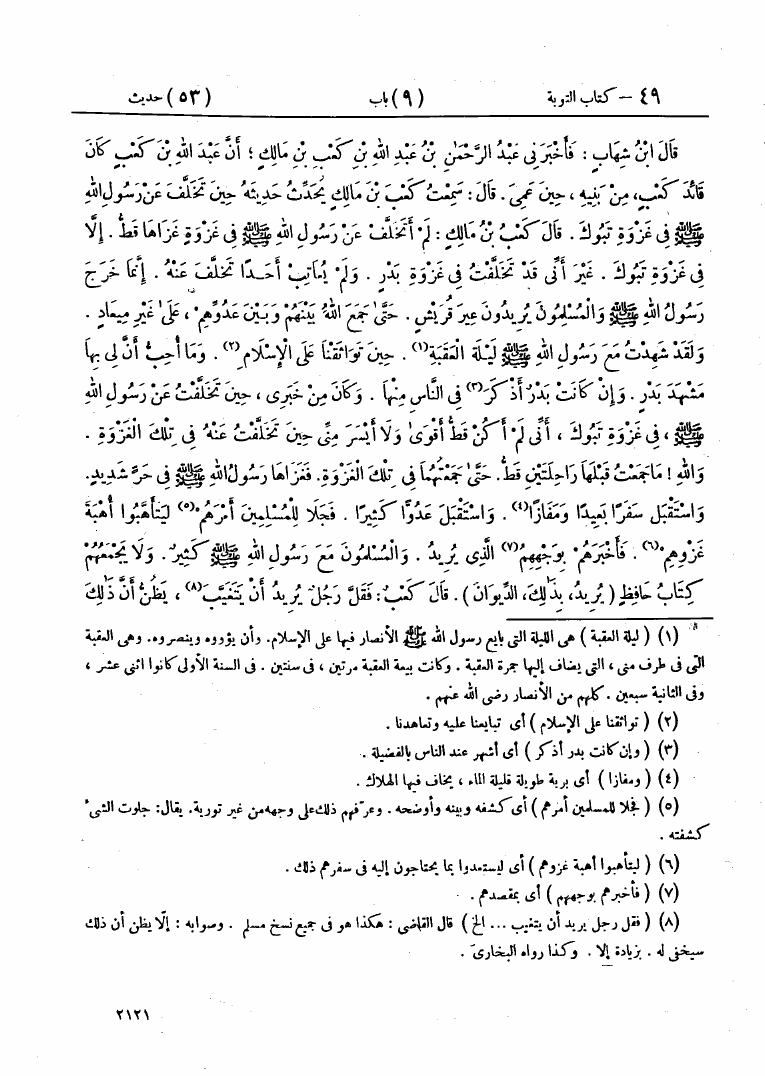 ٤٩ – كتاب التوبة (٩) باب (٥٣) حديث
قَالَ ابْنُ شِهَابٍ : فَأَخْبَرَنِى عَبْدُ الرَّحْمٰنِ بْنُ عَبْدِ اللهِ بْنِ كَعْبِ بْنِ مَالِكٍ ؛ أَنَّ عَبْدَ اللهِ بْنَ كَعْبٍ كَانَ
قَائِدَ كَعْبٍ، مِنْ بَنِيهِ ، حِينَ عَمِىَ . قَالَ : سَمِعْتُ كَعْبَ بْنَ مَالِكٍ يُحَدِّثُ حَدِيثَهُ حِينَ تَخَلَّفَ عَنْ رَسُولِ اللهِ
ﷺ فِى غَزْوَةِ تَبُوكَ . قَالَ كَعْبُ بْنُ مَالِكٍ : لَمْ أَتَخَلَّفْ عَنْ رَسُولِ اللهِ ﷺ فِى غَزْوَةٍ غَزَاهَا قَطُّ . إِلَّا
فِى غَزْوَةِ تَبُوكَ . غَيْرَ أَنِّى قَدْ تَخَلَّفْتُ فِى غَزْوَةِ بَدْرٍ . وَلَمْ يُعَاتِبْ أَحَدًا تَخَلَّفَ عَنْهُ . إِنَّمَا خَرَجَ
رَسُولُ اللهِ ﷺ وَالْمُسْلِمُونَ يُرِيدُونَ عِيرَ قُرَيْشٍ . حَتَّىٰ جَمَعَ اللهُ بَيْنَهُمْ وَبَيْنَ عَدُوِّهِمْ ، عَلَىٰ غَيْرِ مِيعَادٍ .
وَلَقَدْ شَهِدْتُ مَعَ رَسُولِ اللهِ ﷺ لَيْلَةَ الْعَقَبَةِ(١) . حِينَ تَوَاثَقْنَا عَلَى الْإِسْلَامِ(٢) . وَمَا أُحِبُّ أَنَّ لِى بِهَا
مَشْهَدَ بَدْرٍ . وَإِنْ كَانَتْ بَدْرٌ أَذْكَرَ(٣) فِى النَّاسِ مِنْهَا . وَكَانَ مِنْ خَبَرِى ، حِينَ تَخَلَّفْتُ عَنْ رَسُولِ اللهِ
ﷺ ، فِى غَزْوَةِ تَبُوكَ ، أَنِّى لَمْ أَكُنْ قَطُّ أَقْوَىٰ وَلَا أَيْسَرَ مِنِّى حِينَ تَخَلَّفْتُ عَنْهُ فِى تِلْكَ الْغَزْوَةِ .
وَاللهِ ! مَا جَمَعْتُ قَبْلَهَا رَاحِلَتَيْنِ قَطُّ . حَتَّىٰ جَمَعْتُهُمَا فِى تِلْكَ الْغَزْوَةِ . فَغَزَاهَا رَسُولُ اللهِ ﷺ فِى حَرٍّ شَدِيدٍ .
وَاسْتَقْبَلَ سَفَرًا بَعِيدًا وَمَفَازًا(٤) . وَاسْتَقْبَلَ عَدُوًّا كَثِيرًا . فَجَلَا لِلْمُسْلِمِينَ أَمْرَهُمْ(٥) لِيَتَأَهَّبُوا أُهْبَةَ
غَزْوِهِمْ(٦) . فَأَخْبَرَهُمْ بِوَجْهِهِمُ(٧) الَّذِى يُرِيدُ . وَالْمُسْلِمُونَ مَعَ رَسُولِ اللهِ ﷺ كَثِيرٌ . وَلَا يَجْمَعُهُمْ
كِتَابُ حَافِظٍ ( يُرِيدُ ، بِذَٰلِكَ ، الدِّيوَانَ ) . قَالَ كَعْبٌ : فَقَلَّ رَجُلٌ يُرِيدُ أَنْ يَتَغَيَّبَ(٨) ، يَظُنُّ أَنَّ ذَٰلِكَ
(١) ( ليلة العقبة ) هى الليلة التى بايع رسول الله ﷺ الأنصار فيها على الإسلام. وأن يؤووه وينصروه. وهى العقبة
التى فى طرف منى ، التى يضاف إليها جمرة العقبة . وكانت بيعة العقبة مرتين ، فى سنتين . فى السنة الأولى كانوا اثنى عشر ،
وفى الثانية سبعين . كلهم من الأنصار رضى الله عنهم .
(٢) ( تواثقنا على الإسلام ) أى تبايعنا عليه وتعاهدنا .
(٣) ( وإن كانت بدر أذكر ) أى أشهر عند الناس بالفضيلة .
(٤) ( ومفازا ) أى برية طويلة قليلة الماء ، يخاف فيها الهلاك .
(٥) ( فجلا للمسلمين أمرهم ) أى كشفه وبينه وأوضحه . وعرّفهم ذلك على وجهه من غير تورية. يقال: جلوت الشىء
كشفته .
(٦) ( ليتأهبوا أهبة غزوهم ) أى ليستعدوا بما يحتاجون إليه فى سفرهم ذلك .
(٧) ( فأخبرهم بوجههم ) أى بمقصدهم .
(٨) ( فقل رجل يريد أن يتغيب ... الخ ) قال القاضى : هكذا هو فى جميع نسخ مسلم . وصوابه : إلّا يظن أن ذلك
سيخفى له . بزيادة إلا . وكذا رواه البخارىّ .
٢١٢١